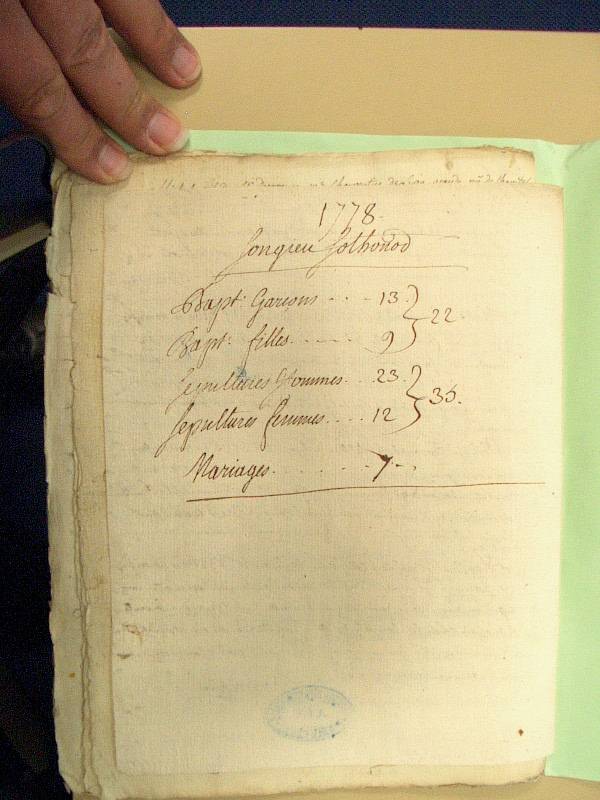 1778.
Songieu Sothonod
Bapt. Garçons - - - 13. } 22.
Bapt. filles. - - - - 9
Sepultures hommes. . . 23. } 35.
Sepultures femmes. . . . 12
Mariages. . . . . . . 7 - .